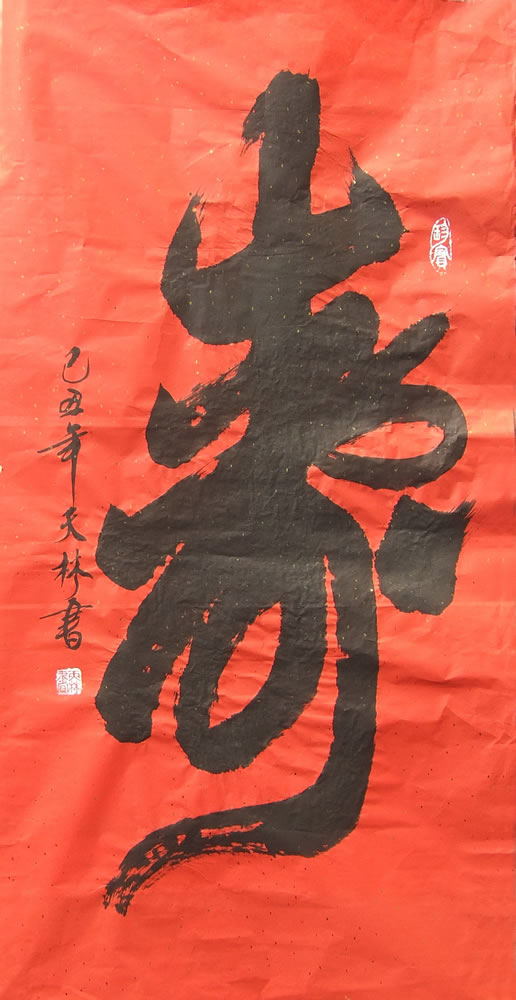 壽
己丑年天林書